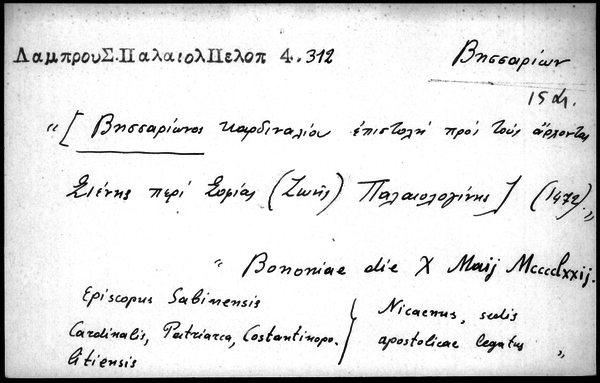 ΛαμπρουΣ.ΠαλαιολΠελοπ 4.312
Βησσαρίων
15 αι.
"[Βησσαρίωνος καρδιναλίου ἐπιστολή πρός τούς ἄρχοντας
Σιένης περί Σοφίας (Ζωῆς) Παλαιολογίνης] (1472)."
" Bononiae die X Maij Mcccclxxij.
Episcopus Sabinensis
Cardinalis, Patriarca, Costantinopo-
litiensis
Nicaenus, sedis
apostolicae legatus "